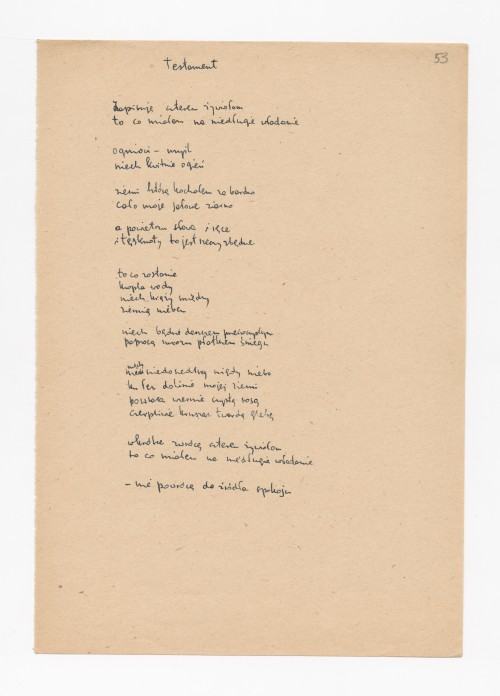 Testament
53
Zapisuję czterem żywiołom
to co miałem na niedługie władanie
ogniowi – myśl
niech kwitnie ogień
ziemi którą kochałem za bardzo
ciało moje jałowe ziarno
a powietrzu słowa i ręce
i tęsknoty to jest rzeczy zbędne
to co zostanie
kropla wody
niech krąży między
ziemią niebem
niech będzie deszczem przezroczystym
paprocią mrozu płatkiem śniegu
niech
nie doszedłszy nigdy nieba
ku łez dolinie mojej ziemi
powraca wiernie czystą rosą
cierpliwie krusząc twardą glebę
wkrótce zwrócę czterem żywiołom
to co miałem na niedługie władanie
– nie powrócę do źródła spokoju